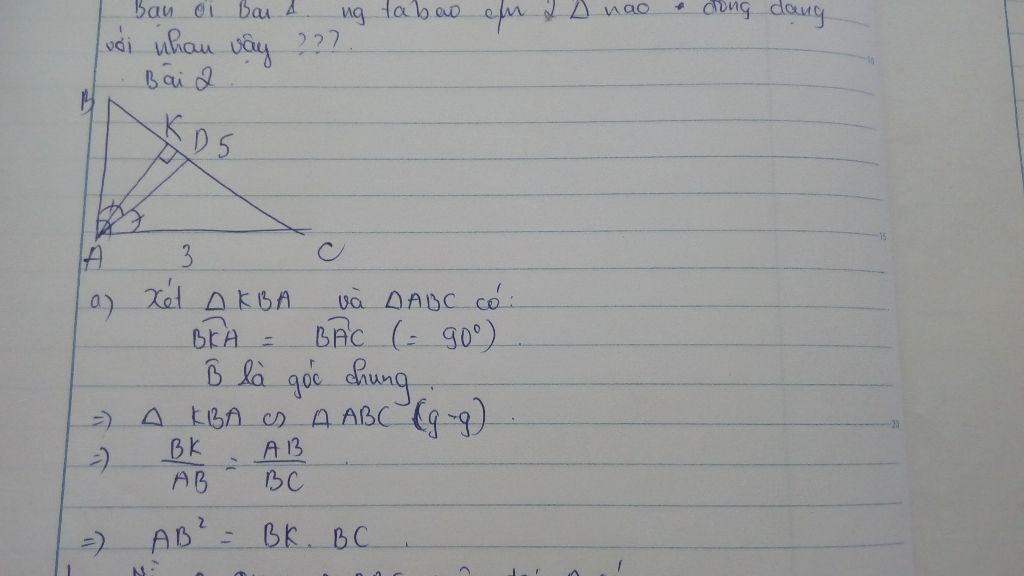 Bạn ơi Bài 1. ng ta bảo c/m 2 Δ nào đồng dạng
với nhau vậy ???.
Bài 2.
B
K
D 5
A 3 C
a) Xét Δ KBA và ΔABC có:
BKA = BAC (= 90°).
B̂ là góc chung.
=> Δ KBA ∽ Δ ABC (g-g).
=> BK/AB = AB/BC.
=> AB² = BK. BC.